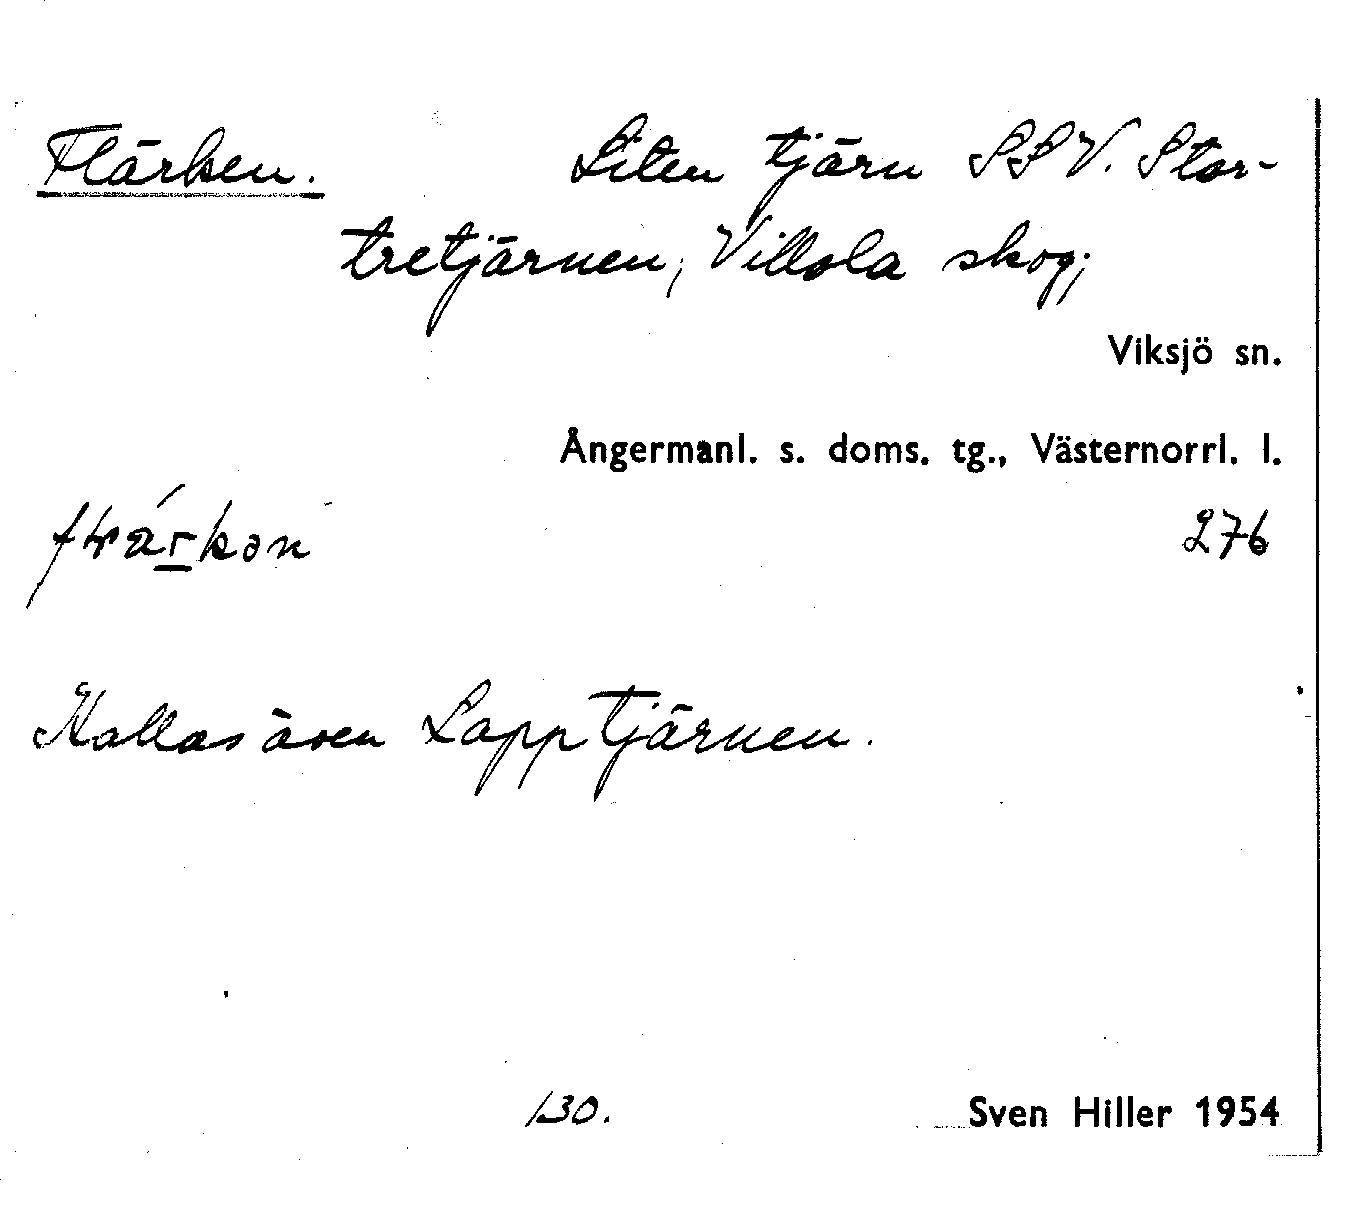 Flärken. Liten tjärn SSV. Stor-
tretjärnen; Villola skog;
Viksjö sn.
Ångermanl. s. doms. tg., Västernorrl. l.
276
Kallas även Lapptjärnen.
130. Sven Hiller 1954